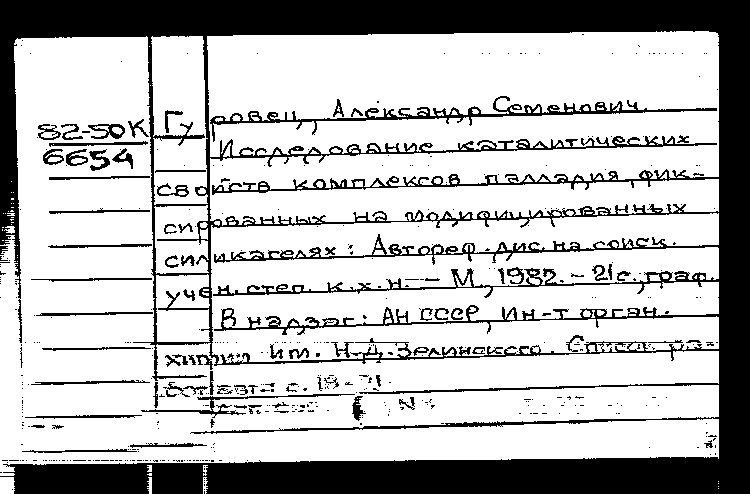 82-50К
6654
Гуровец, Александр Семенович.
Исследование каталитических
свойств комплексов палладия, фик-
сированных на модифицированных
силикагелях: Автореф. дис. на соиск.
учен. степ. к.х.н. – М., 1982. – 21 с., граф.
В надзаг: АН СССР, Ин-т орган.
химии им. Н.Д. Зелинского. Список ра-
бот авт. с. 19-21